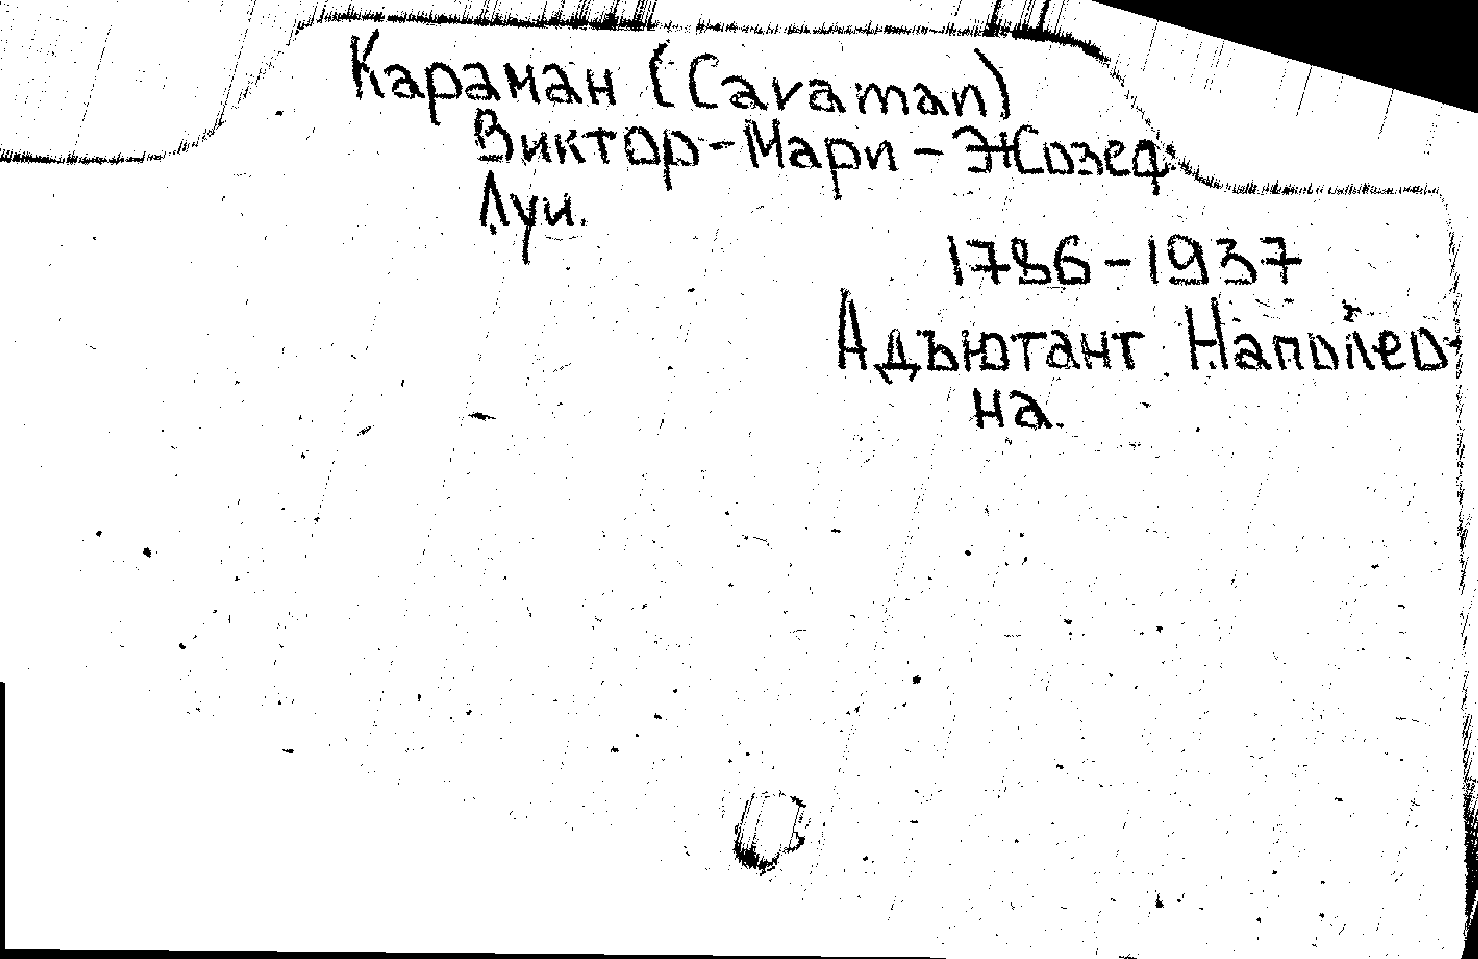 Караман (Caraman)
Виктор-Мари-Жозеф
Луи.
1786-1937
Адъютант Наполео-
на.